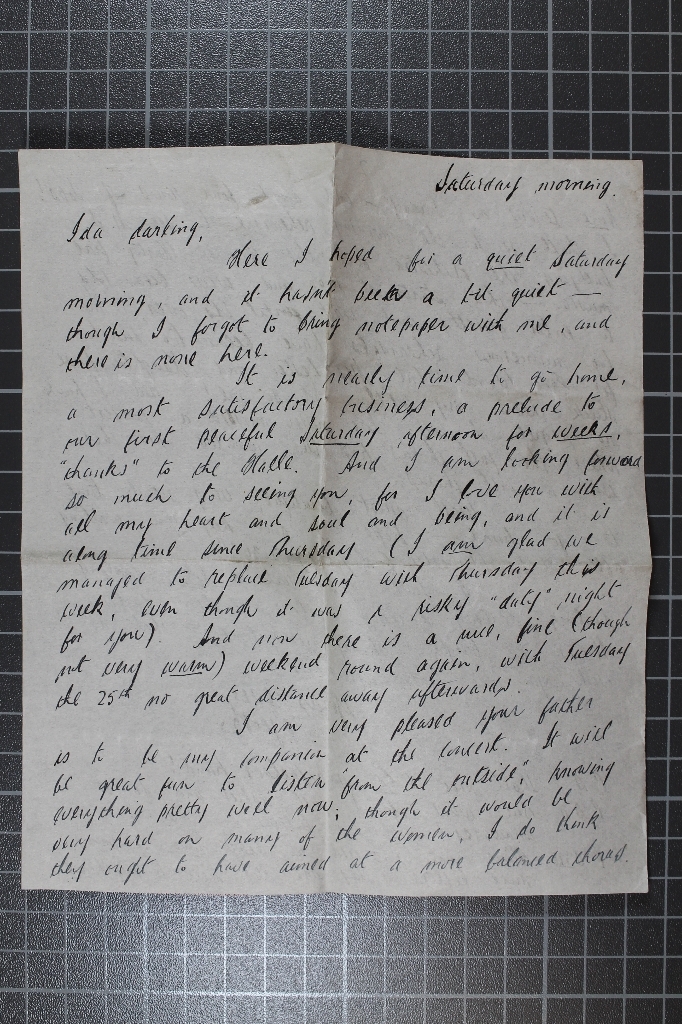 Saturday morning.
Ida darling,
Here I hoped for a quiet Saturday
morning, and it hasn't been a bit quiet —
though I forgot to bring notepaper with me, and
there is none here.
It is nearly time to go home,
a most satisfactory business, a prelude to
our first peaceful Saturday afternoon for weeks,
"thanks" to the Halle. And I am looking forward
so much to seeing you, for I love you with
all my heart and soul and being, and it is
along time since Thursday (I am glad we
managed to replace Tuesday with Thursday this
week, even though it was a risky "duty" night
for you). And now there is a nice, fine (though
not very warm) weekend 'round again, with Tuesday
the 25th no great distance away afterwards.
I am very pleased your father
is to be my companion at the concert. It will
be great fun to listen "from the outside", knowing
everything pretty well now; though it would be
very hard on many of the women, I do think
they ought to have aimed at a more balanced chorus.